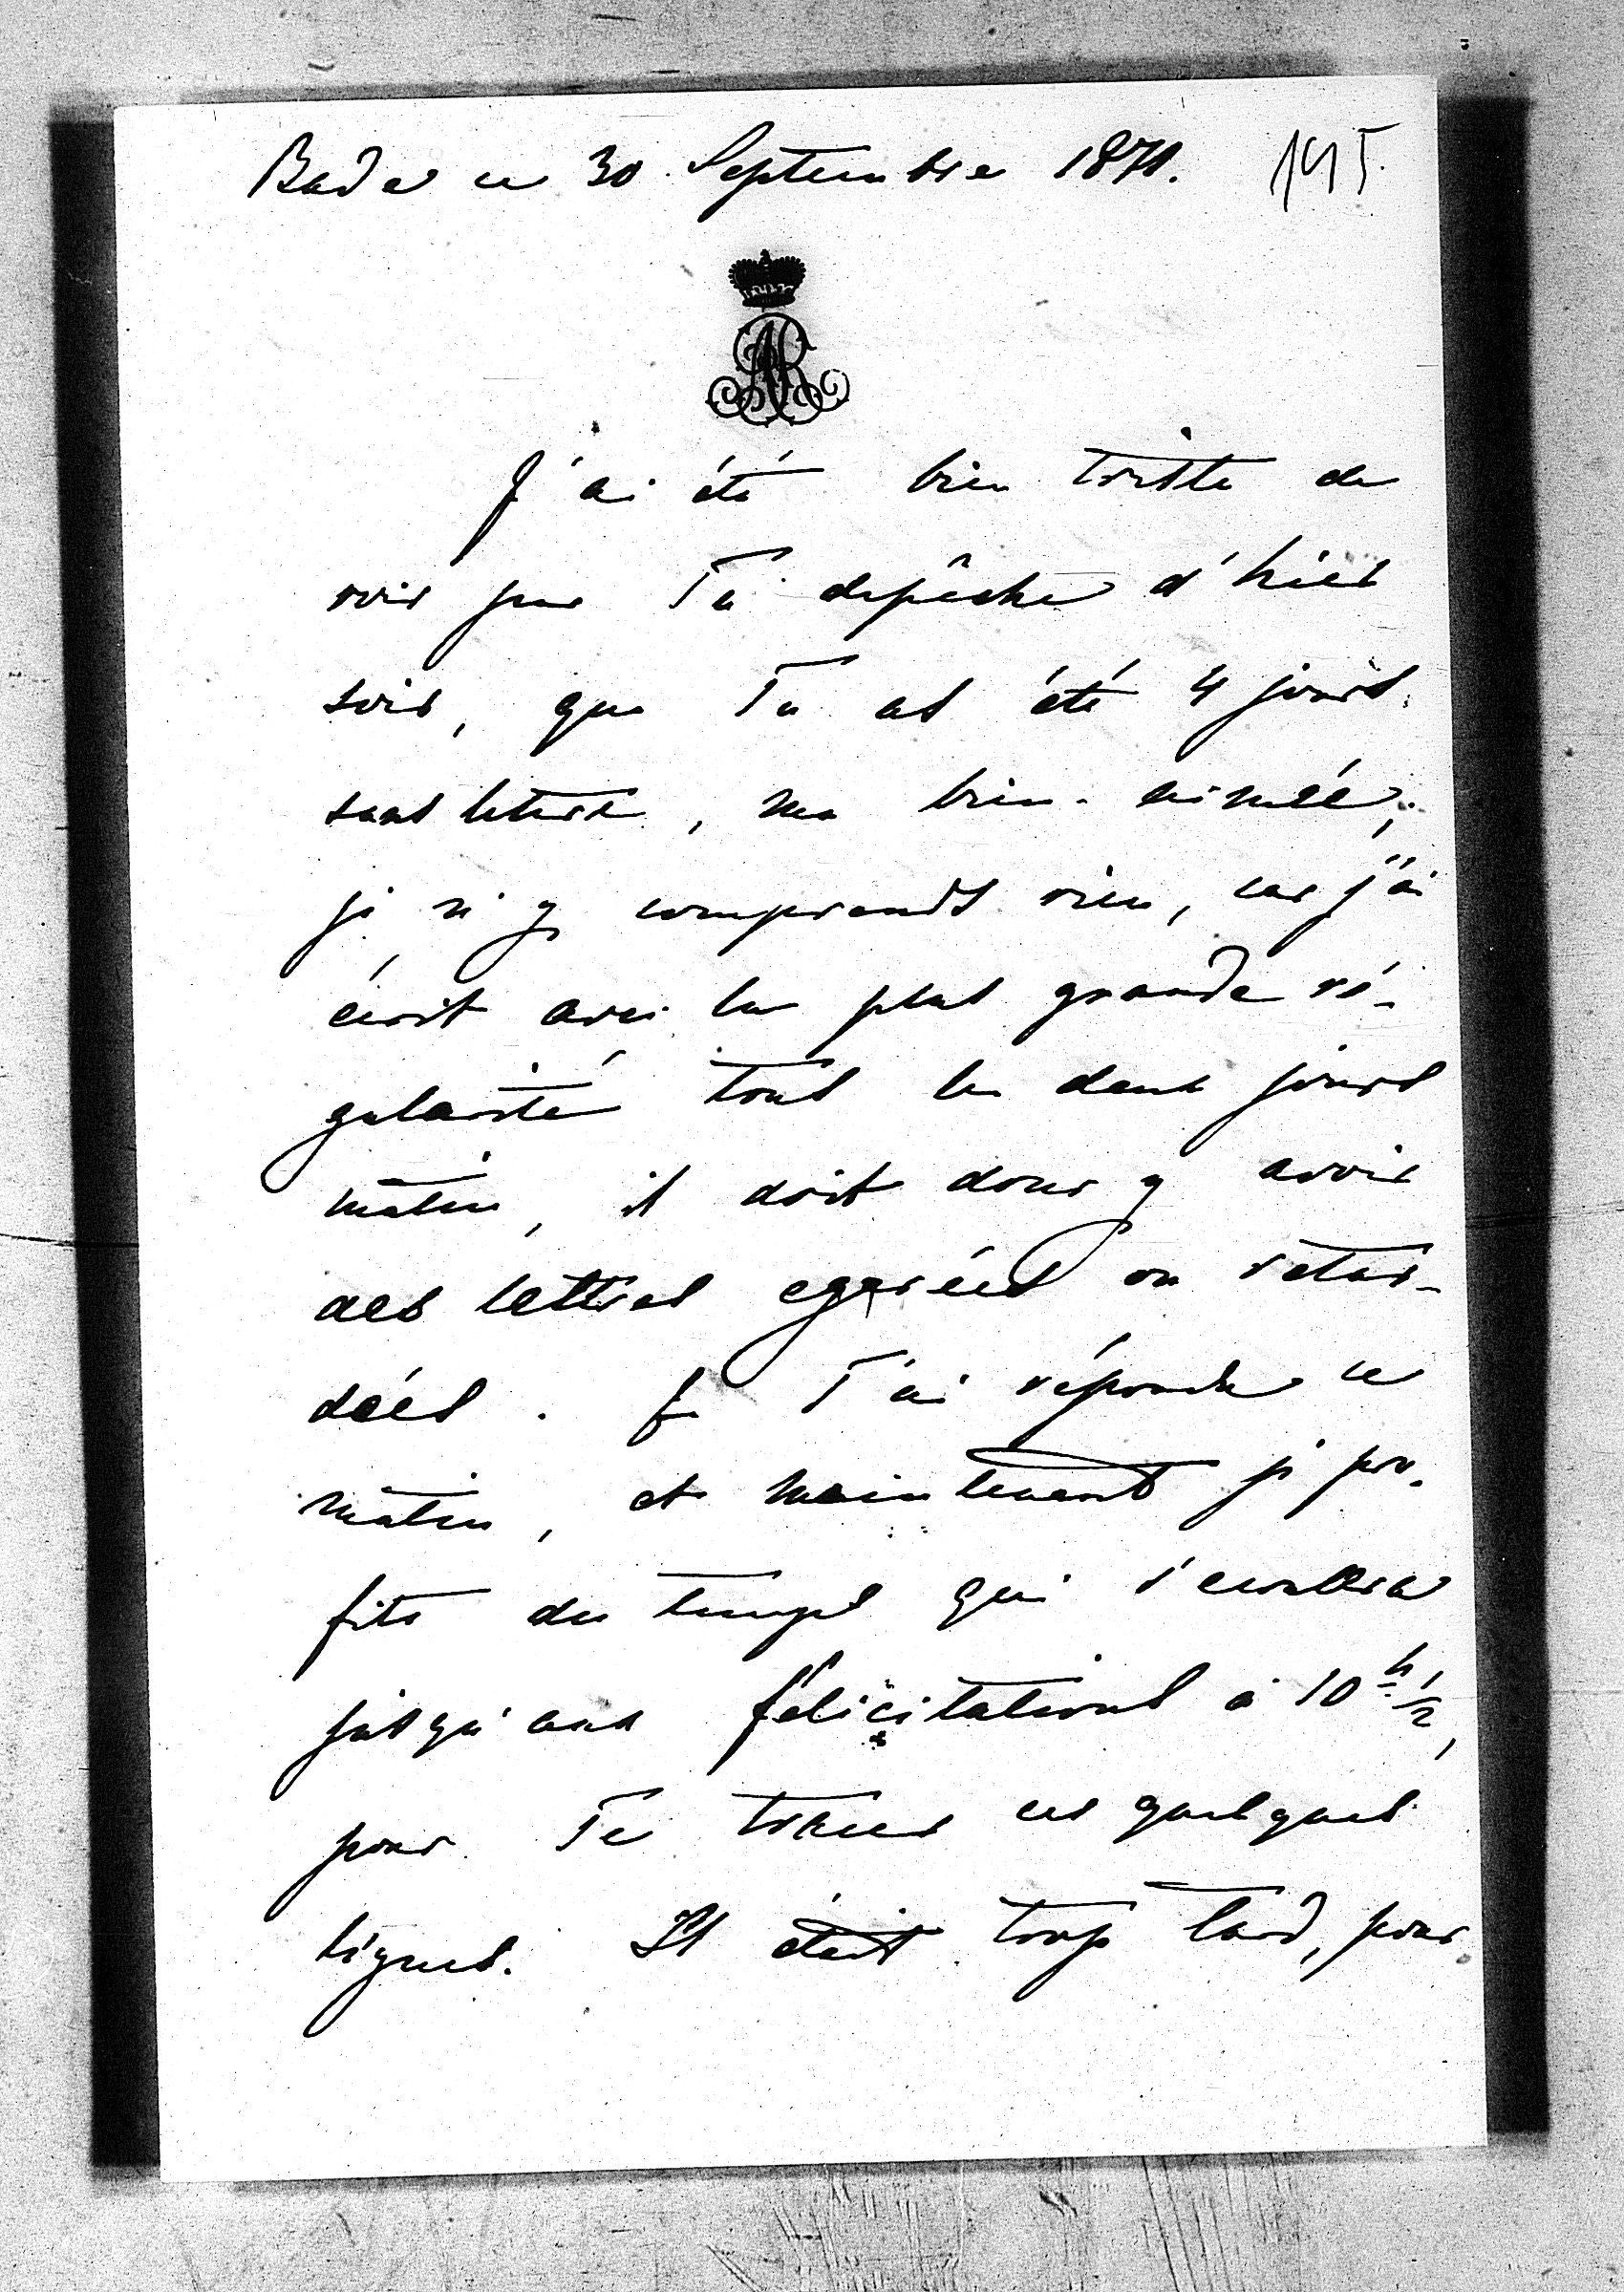 Bade ce 30 Septembre 1871. 195.
AR
J'ai été bien triste de
voir par Ta depêche d'hier
soir, que Tu as été 4 jours
sans lettres, ma bien-aimée,
je n'y comprends rien, car j'ai
écrit avec la plus grande ré-
gularité tous les deux jours
matin, il doit donc y avoir
des lettres egarées ou retar-
dées. Je T'ai répondu ce
matin, et maintenant je pro-
fite du temps qui s'ecoulera
jusqu'aux félicitations à 10 h 1/2,
pour Te tracer ces quelques
lignes. Il était trop tard, pour